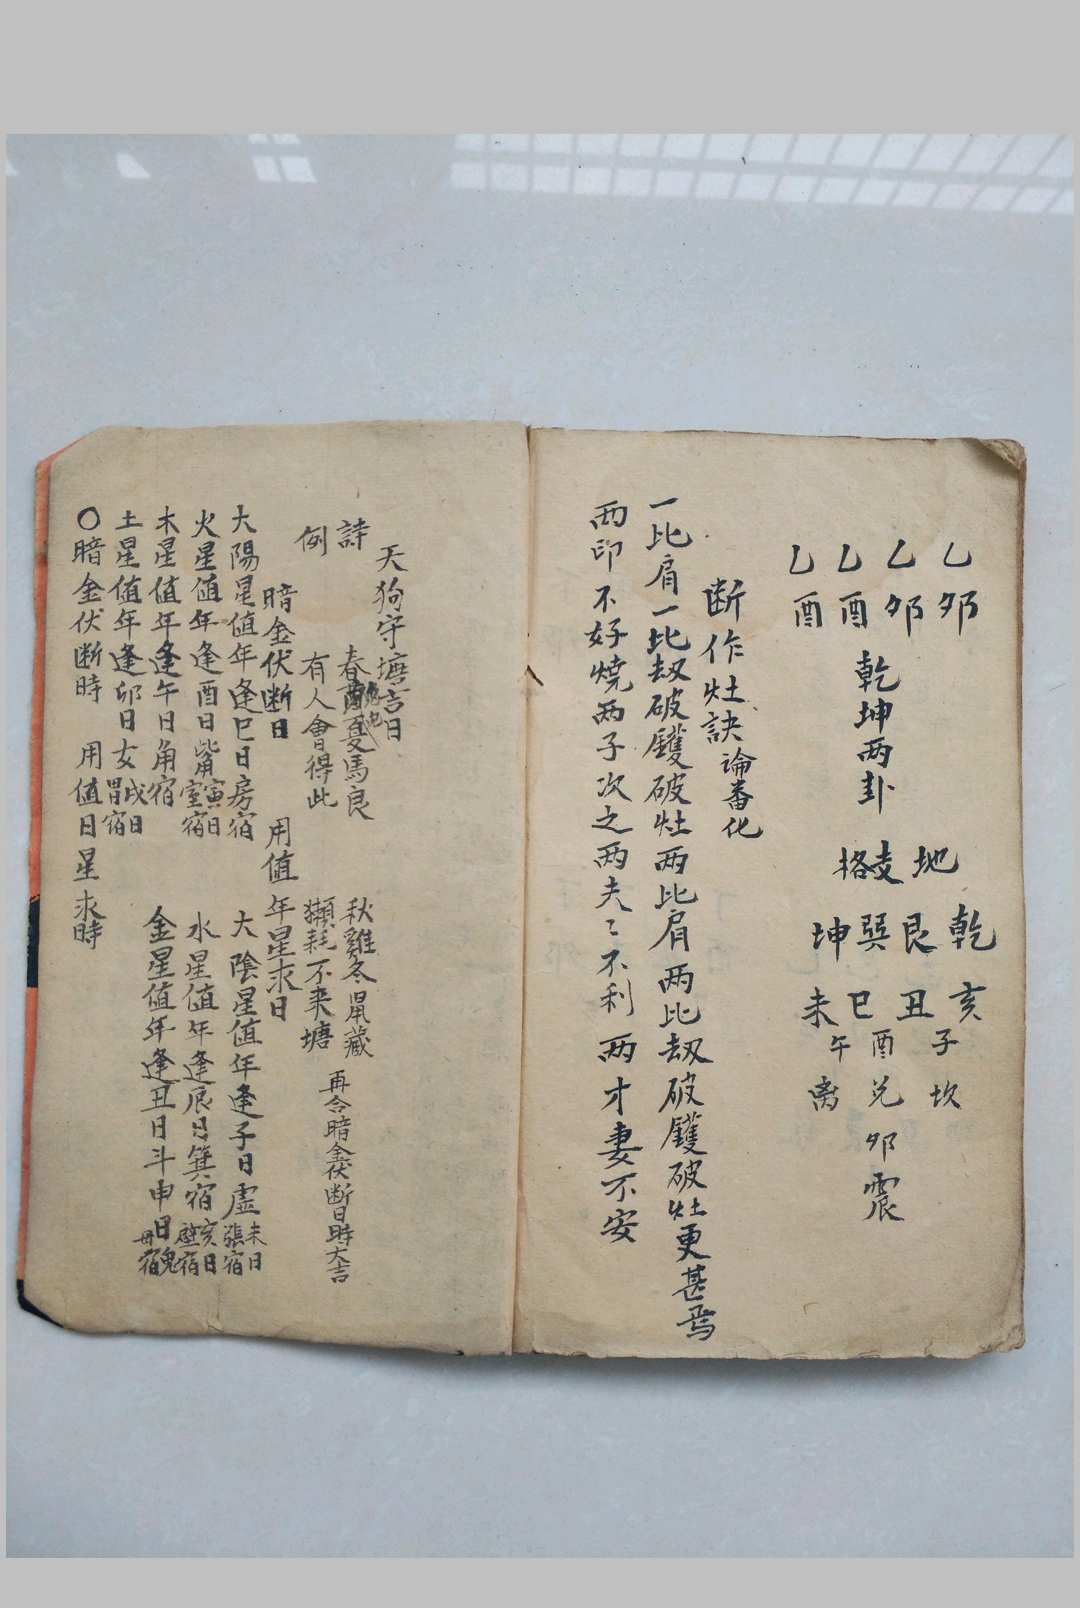 乙夘
乙夘
乙酉
乙酉
乾坤两卦
地支格
乾亥
子坎
艮丑
巽巳
酉兑
夘震
坤未
午离
断作灶訣論番化
一比肩一比刼破鑊破灶两比肩两比刼破鑊破灶更甚焉
两印不好燒两子次之两夫〻不利两才妻不安
天狗守塘吉日
詩例
春 夏馬良
秋雞冬鼠藏
有人會得此
獺耗不来塘
再合暗金伏断日時大吉
暗金伏断日 用值年星求日
大陽星值年逢巳日房宿
大陰星值年逢子日虚 未日張宿
火星值年逢酉日觜 寅日室宿
水星值年逢辰日箕宿 亥日壁宿
木星值年逢午日角宿
金星值年逢丑日斗申日鬼
土星值年逢卯日女 戌日胃宿
〇暗金伏断時 用值日星求時